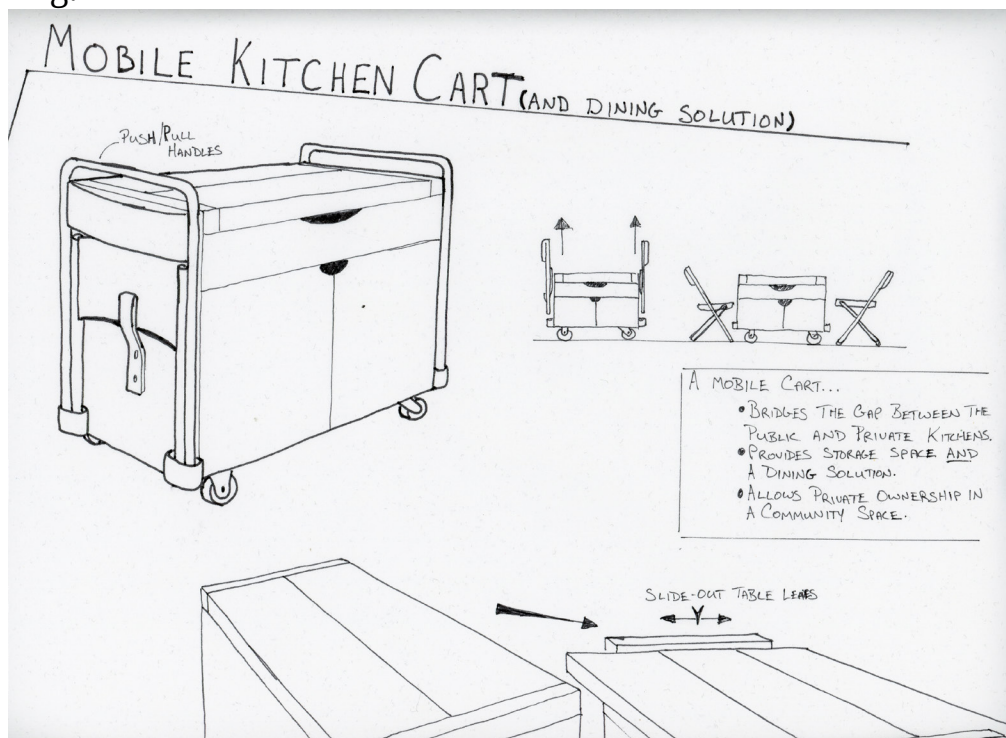 MOBILE KITCHEN CART (AND DINING SOLUTION)
PUSH/PULL
HANDLES
A MOBILE CART...
• BRIDGES THE GAP BETWEEN THE
PUBLIC AND PRIVATE KITCHENS.
• PROVIDES STORAGE SPACE AND
A DINING SOLUTION.
• ALLOWS PRIVATE OWNERSHIP IN
A COMMUNITY SPACE.
SLIDE-OUT TABLE LEAFS